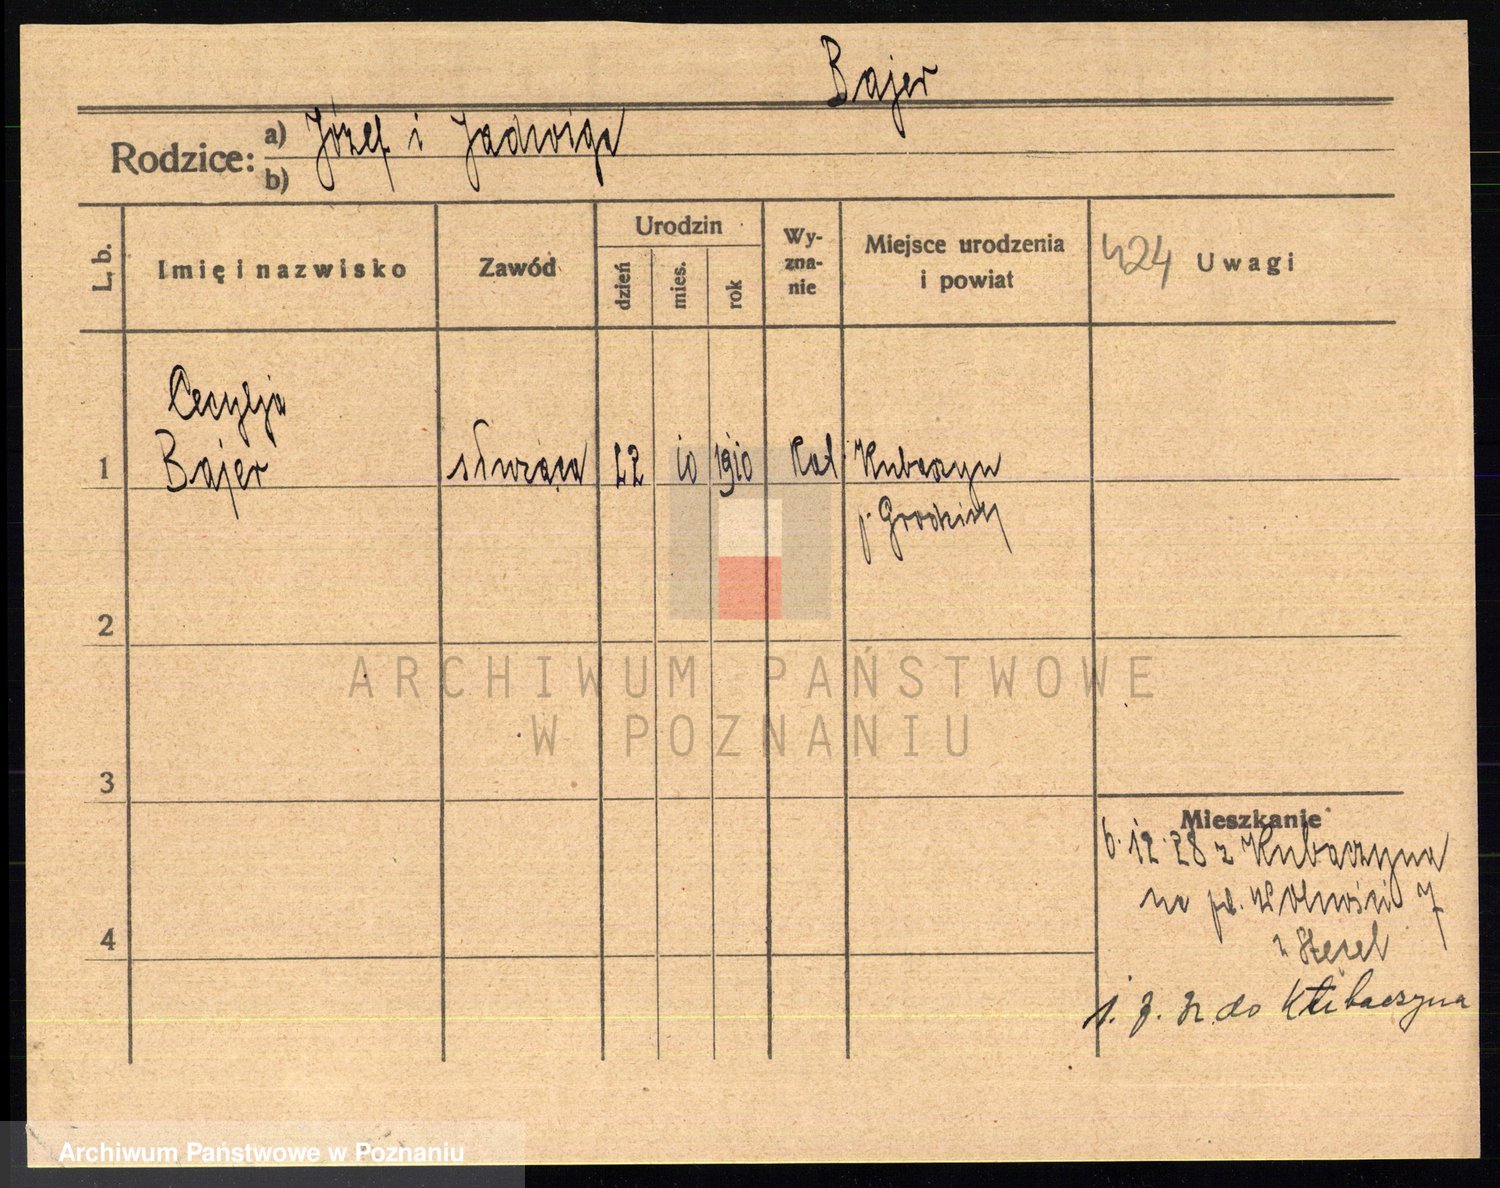 Bajer
Rodzice: a) Józef i Jadwiga
b)
L. b. Imię i nazwisko Zawód Urodzin dzień mies. rok Wy-zna-nie Miejsce urodzenia i powiat 424 Uwagi
Cecylja
1 Bajer służąca 22 10 1910 kat Kubaczyn
p. Grodzisk
2
ARCHIWUM PAŃSTWOWE
W POZNANIU
3
Mieszkanie
6.12.28 z Kubaczyna
na pl. Wolności 7
4
do Kubaczyna
Archiwum Państwowe w Poznaniu